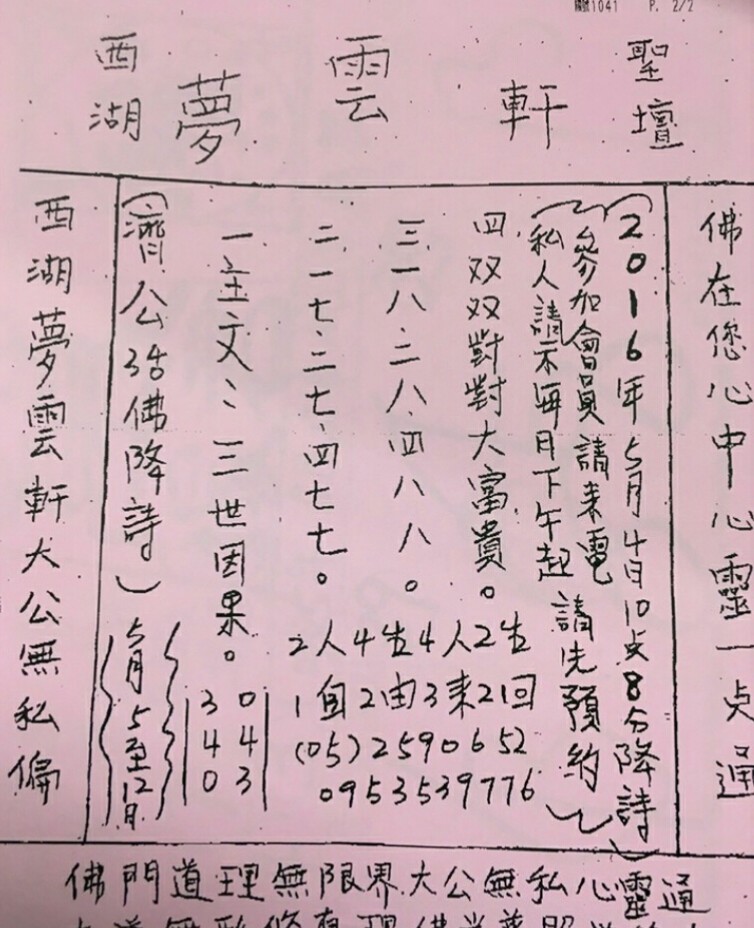 1041 P. 2/2
西湖夢雲軒聖壇
佛在您心中心靈一点通
(2016年5月4日10点8分降詩)
(參加會員請來電
私人請示每日下午起請先預約)
四双双對對大富貴。
三一八、二八、四八八。
二一七、二七、四七七。
一主文:三世因果。
(濟公活佛降詩)
5月5至12日
2人4生4人2生
1自2由3来21回
(05)2590652
0953539776
30
44
03
西湖夢雲軒大公無私偏
佛門道理無限界大公無私心靈通